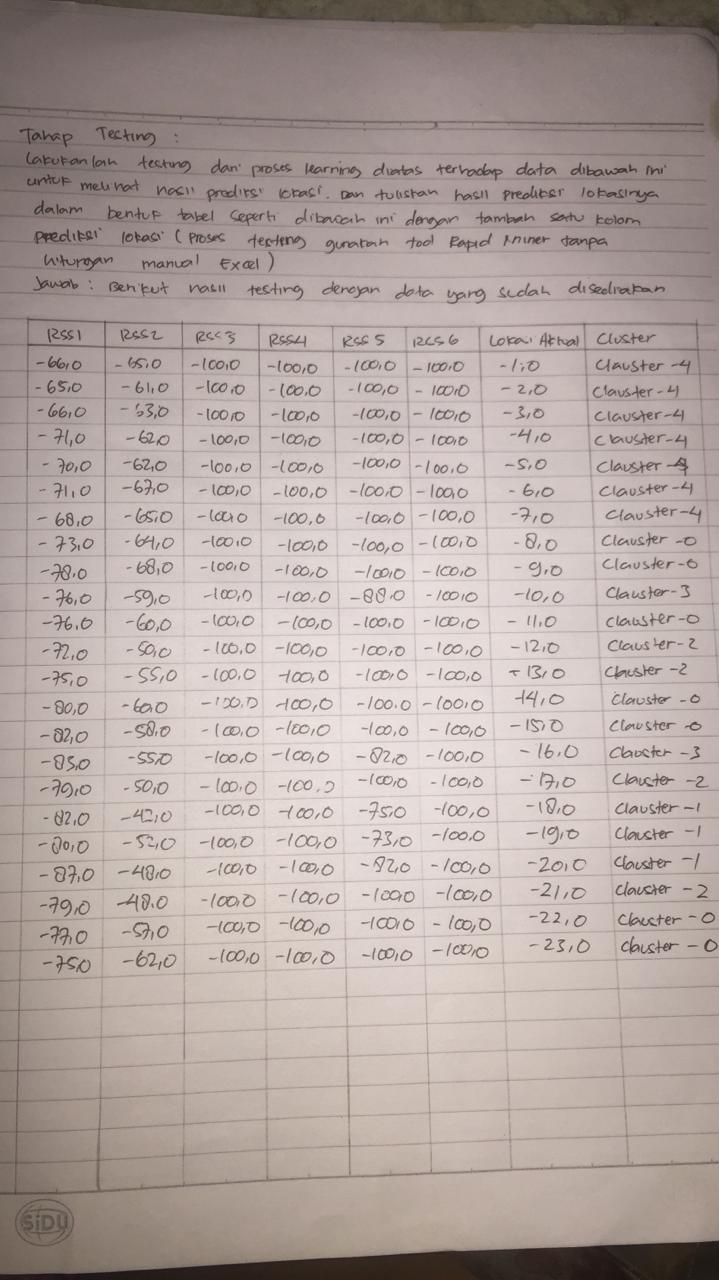 Tahap Testing :
Lakukanlah testing dari proses learning diatas terhadap data dibawah ini
untuk melihat hasil prediksi lokasi. Dan tuliskan hasil prediksi lokasinya
dalam bentuk tabel seperti dibawah ini dengan tambah satu kolom
prediksi lokasi (Proses testing gunakan tool Rapid Miner tanpa
hitungan manual Excel)
Jawab : Berikut hasil testing dengan data yang sudah disediakan
RSS1 RSS2 RSS3 RSS4 RSS5 RSS6 Lokasi Aktual Cluster
-66,0 -65,0 -100,0 -100,0 -100,0 -100,0 -1,0 Clauster-4
-65,0 -61,0 -100,0 -100,0 -100,0 -100,0 -2,0 Clauster-4
-66,0 -63,0 -100,0 -100,0 -100,0 -100,0 -3,0 Clauster-4
-71,0 -62,0 -100,0 -100,0 -100,0 -100,0 -4,0 Clauster-4
-70,0 -62,0 -100,0 -100,0 -100,0 -100,0 -5,0 Clauster-4
-71,0 -67,0 -100,0 -100,0 -100,0 -100,0 -6,0 Clauster-4
-68,0 -65,0 -100,0 -100,0 -100,0 -100,0 -7,0 Clauster-4
-73,0 -64,0 -100,0 -100,0 -100,0 -100,0 -8,0 Clauster-0
-78,0 -68,0 -100,0 -100,0 -100,0 -100,0 -9,0 Clauster-0
-76,0 -59,0 -100,0 -100,0 -88,0 -100,0 -10,0 Clauster-3
-76,0 -60,0 -100,0 -100,0 -100,0 -100,0 -11,0 Clauster-0
-72,0 -50,0 -100,0 -100,0 -100,0 -100,0 -12,0 Clauster-2
-75,0 -55,0 -100,0 -100,0 -100,0 -100,0 -13,0 Clauster-2
-80,0 -60,0 -100,0 -100,0 -100,0 -100,0 -14,0 Clauster-0
-82,0 -58,0 -100,0 -100,0 -100,0 -100,0 -15,0 Clauster-0
-85,0 -55,0 -100,0 -100,0 -82,0 -100,0 -16,0 Clauster-3
-79,0 -50,0 -100,0 -100,0 -100,0 -100,0 -17,0 Clauster-2
-82,0 -42,0 -100,0 -100,0 -75,0 -100,0 -18,0 Clauster-1
-80,0 -52,0 -100,0 -100,0 -73,0 -100,0 -19,0 Clauster-1
-87,0 -48,0 -100,0 -100,0 -82,0 -100,0 -20,0 Clauster-1
-79,0 -48,0 -100,0 -100,0 -100,0 -100,0 -21,0 Clauster-2
-77,0 -57,0 -100,0 -100,0 -100,0 -100,0 -22,0 Clauster-0
-75,0 -62,0 -100,0 -100,0 -100,0 -100,0 -23,0 Clauster-0
SiDU